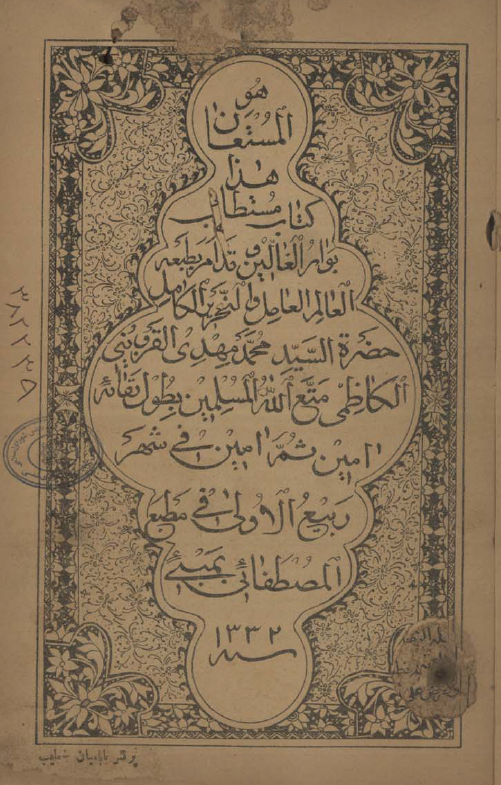 هُو
المُستَعان
هذا
كتاب مستطاب
بوار الغالين قد امر بطبعه
العالم العامل والنحرير الكامل
حضرة السيد محمد مهدى القزوينى
الكاظمى متع الله المسلمين بطول بقائه
امين ثم امين فى شهر
ربيع الاولى فى مطبع
المصطفائى بمبئى
سنه ١٣٣٢